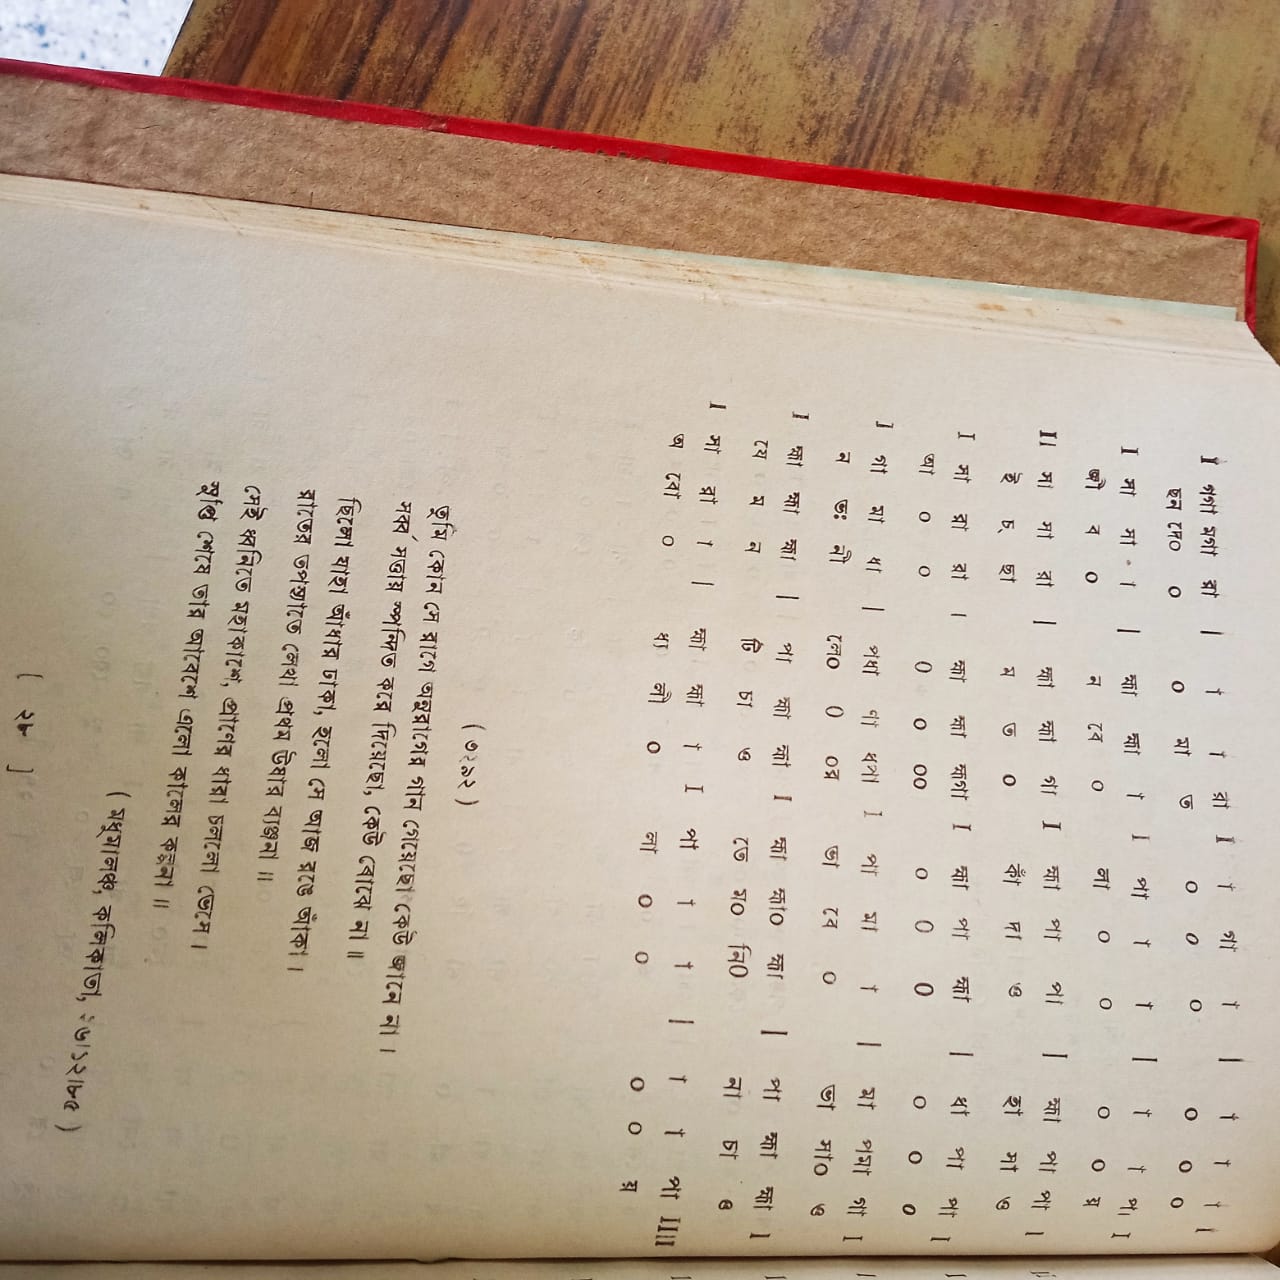 I পগা মগা রা | † † রা I † গা † | † † † I
ছন দে০ ০ ০ মা ত ০ ০ ০ ০ ০ ০
I সা সা † | ক্ষা ক্ষা † I পা † † | † † প। I
জী ব ০ ন বে ০ লা ০ ০ ০ ০ য়
II সা সা রা | ক্ষা ক্ষা গা I ক্ষা পা পা | ক্ষা পা পা I
ই চ্ ছা ম ত ০ কাঁ দা ও হা সা ও
I সা রা রা | ক্ষা ক্ষা ক্ষগা I ক্ষা পা ক্ষা | ধা পা পা |
আ ০ ০ ০ ০ ০০ ০ ০ ০ ০ ০ ০
I গা মা ধা | পধা পা ধপা I পা মা † | মা পমা গা I
ন ন্তঃ নী লে০ ০ ০র ভা বে ০ ভা সা০ ও
I ক্ষা ক্ষা ক্ষা | পা ক্ষা ক্ষা I ক্ষা ক্ষা০ ক্ষা | পা ক্ষা ক্ষা I
যে ম ন টি চা ও তে ম০ নি০ না চা ও
I সা রা † | ক্ষা ক্ষা † I পা † † | † † পা II||
অ বো ০ ধ্য লী ০ লা ০ ০ ০ ০ য়
( ৩২৯২ )
তুমি কোন সে রাগে অনুরাগের গান গেয়েছো কেউ জানে না।
সর্ব সত্তায় স্পন্দিত করে দিয়েছো, কেউ বোঝে না॥
ছিলো যাহা আঁধার ঢাকা, হলো সে আজ রঙে আঁকা।
রাতের তপস্যাতে লেখা প্রথম ঊষার ব্যঞ্জনা॥
সেই ধ্বনিতে মহাকাশে, প্রাণের ধারা চললো ভেসে।
সুপ্তি শেষে তার আবেশে এলো কালের কল্পনা॥
( মধুমালঞ্চ, কলিকাতা, ২৬।১২।৮৫ )
[ ২৮ ]